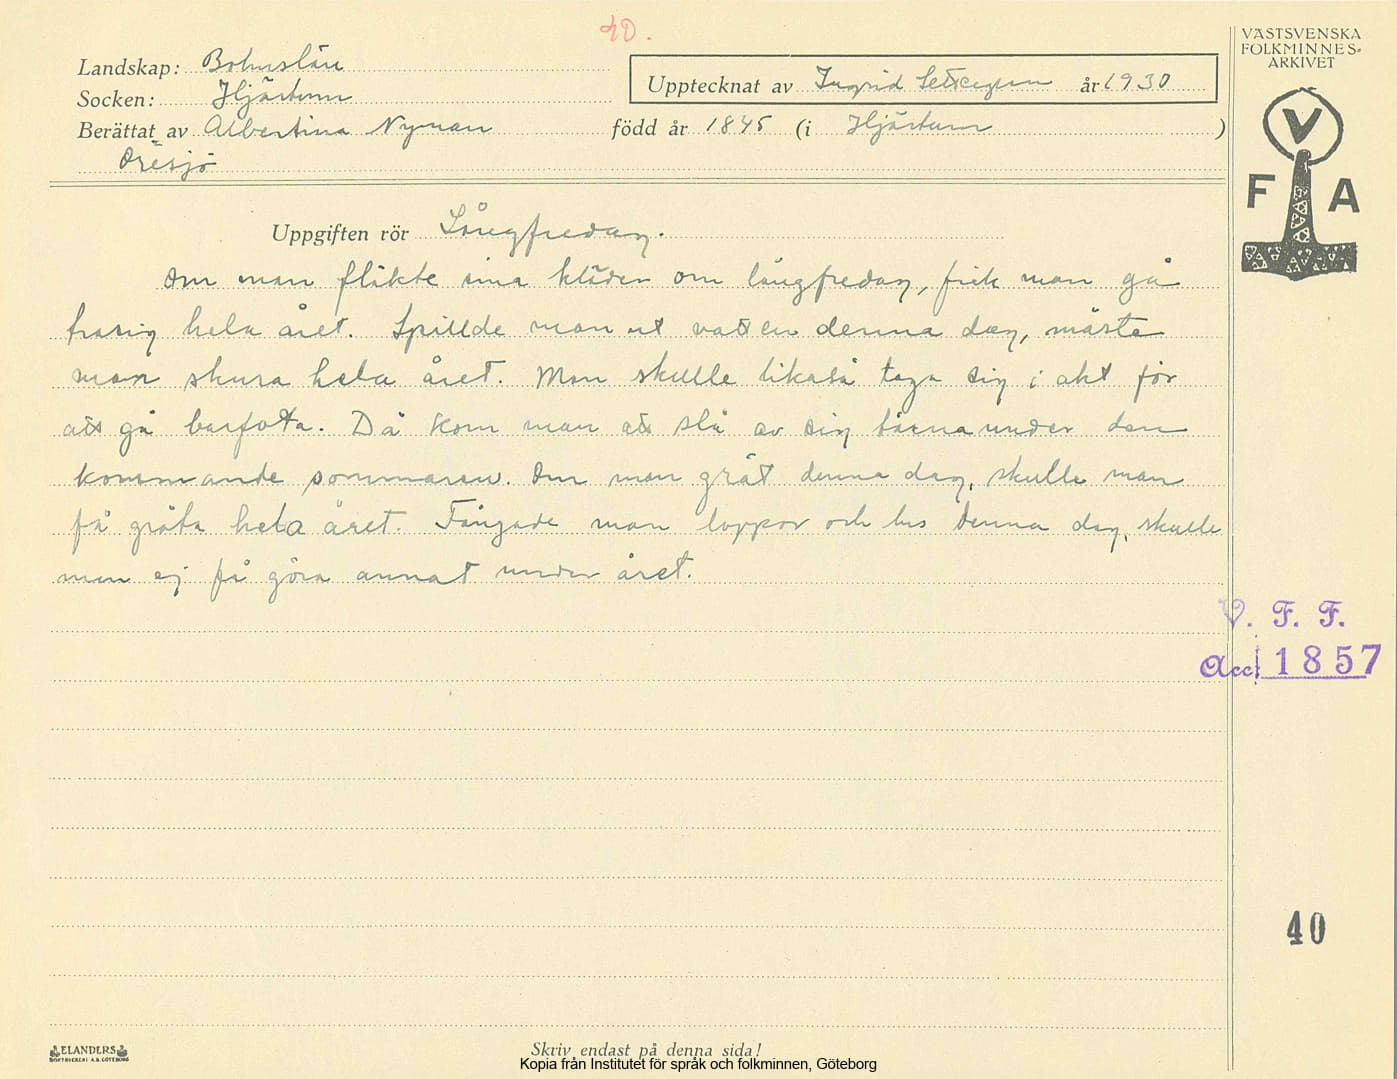 40.
VÄSTSVENSKA
FOLKMINNES-
ARKIVET
Landskap: Bohuslän
Upptecknat av Ingrid år 1930
Socken: Hjärtum
Berättat av Albertina Nyman född år 1845 (i Hjärtum)
V
F A
Uppgiften rör Långfredag.
Om man fläkte sina kläder om långfredag, fick man gå
trasig hela året. Spillde man ut vatten denna dag, måste
man skura hela året. Man skulle likaså taga sig i akt för
att gå barfota. Då kom man att slå av sig tårna under den
kommande sommaren. Om man grät denna dag, skulle man
få gråta hela året. Fångade man loppor och lus denna dag, skulle
man ej få göra annat under året.
V. F. F.
Acc. 1857
40
ELANDERS
BOKTRYCKERI A.B. GÖTEBORG
Skriv endast på denna sida!
Kopia från Institutet för språk och folkminnen, Göteborg